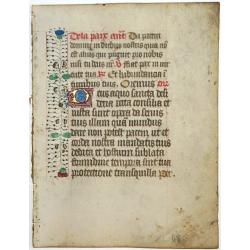 De la paix ant. Da pacem
domine in diebus nostris quia no
est alius qui pugnet pro nobis
nisi tu deus
tute tua Et habundancia i
turribus tuis. Oremus
Deus a quo sancta des
deria recta consilia et
iusta sunt opera da seruis
tuis illam quam mundus
dare non potest pacem ut et
corda nostra mandatis tuis
dedita et hostium sublata
formidine tempora sint tua
protectione tranquilla Per